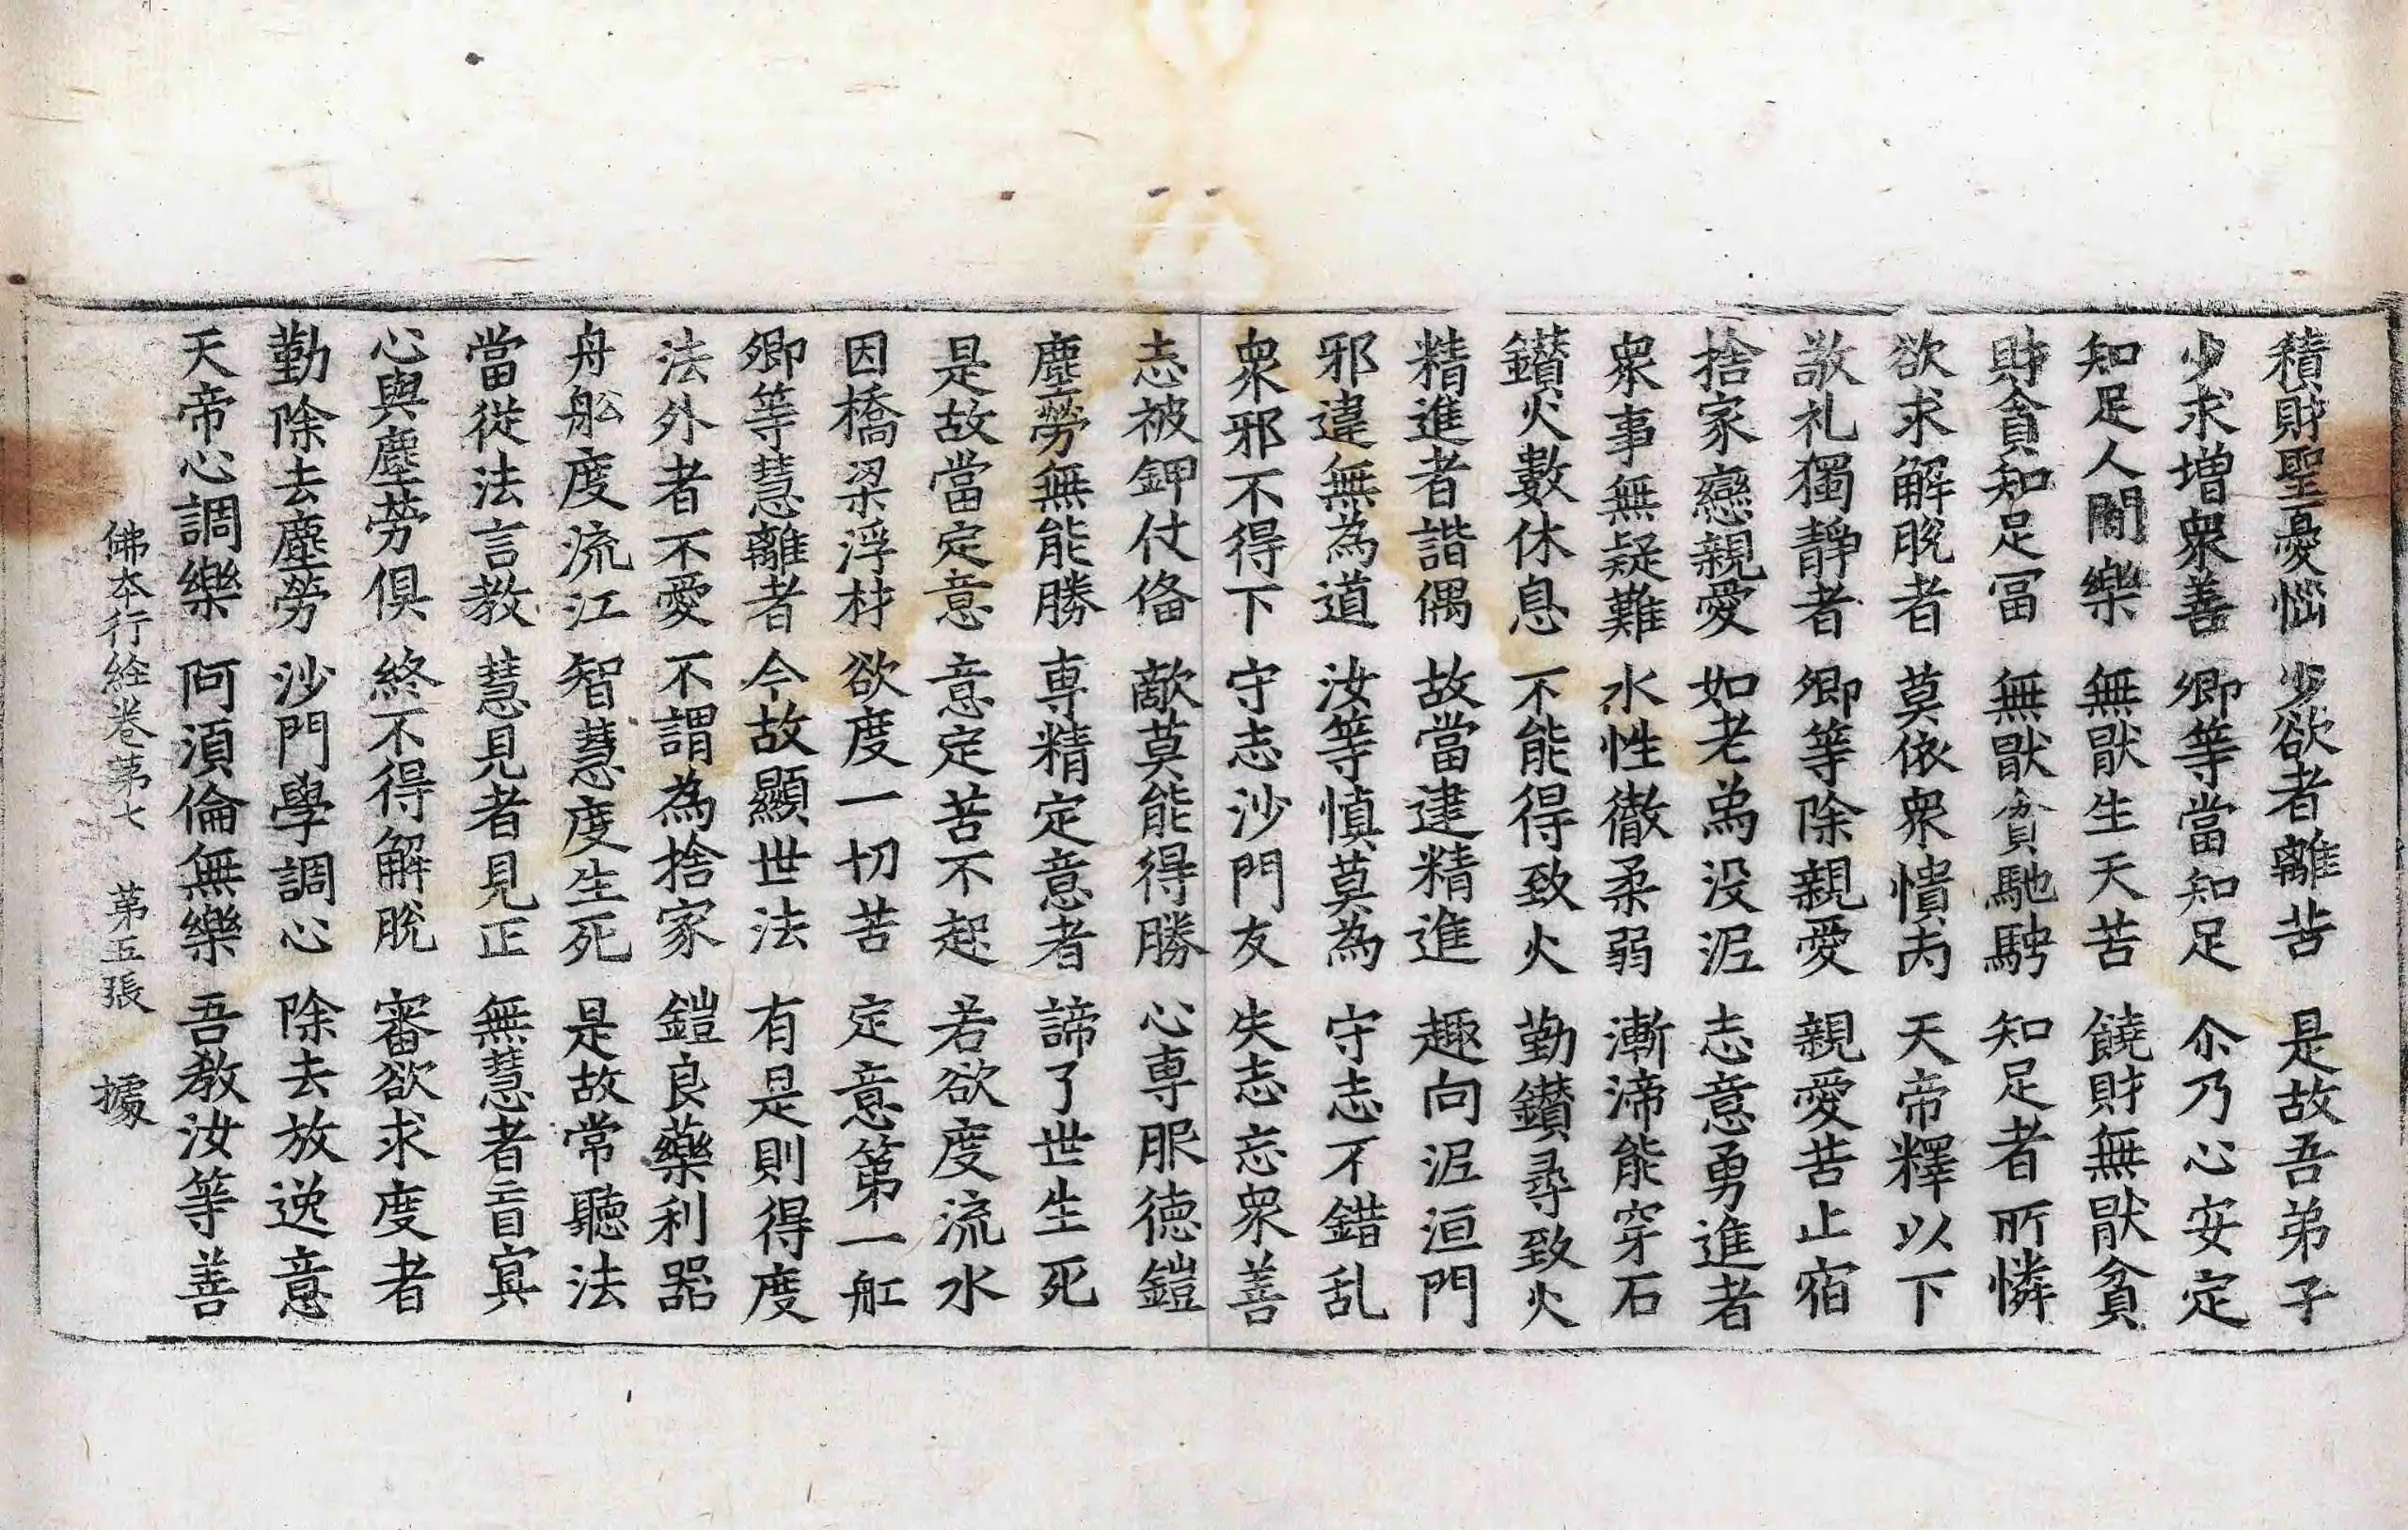 積財聖憂惱 少欲者離苦 是故吾弟子
少求增衆善 卿等當知足 尒乃心安定
知足人間樂 無猒生天苦 饒財無猒貧
財貪知足冨 無猒貧馳騁 知足者所憐
欲求解脫者 莫依衆憒丙 天帝釋以下
敬礼獨靜者 卿等除親愛 親愛苦止宿
捨家戀親愛 如老為没泥 志意勇進者
衆事無疑難 水性徹柔弱 漸渧能穿石
鑚火數休息 不能得致火 勤鑚尋致火
精進者諧偶 故當建精進 趣向泥洹門
邪違無為道 汝等慎莫為 守志不錯乱
衆邪不得下 守志沙門友 失志忘衆善
志被鉀仗俻 敵莫能得勝 心専服德鎧
塵勞無能勝 専精定意者 諦了世生死
是故當定意 意定苦不起 若欲度流水
因橋梁浮材 欲度一切苦 定意第一舡
卿等慧離者 今故顯世法 有是則得度
法外者不愛 不謂為捨家 鎧良藥利器
舟舩度流江 智慧度生死 是故常聽法
當從法言教 慧見者見正 無慧者盲㝠
心與塵勞俱 終不得解脫 審欲求度者
勤除去塵勞 沙門學調心 除去放逸意
天帝心調樂 阿湏倫無樂 吾教汝等善
佛本行經卷第七 第五張 據